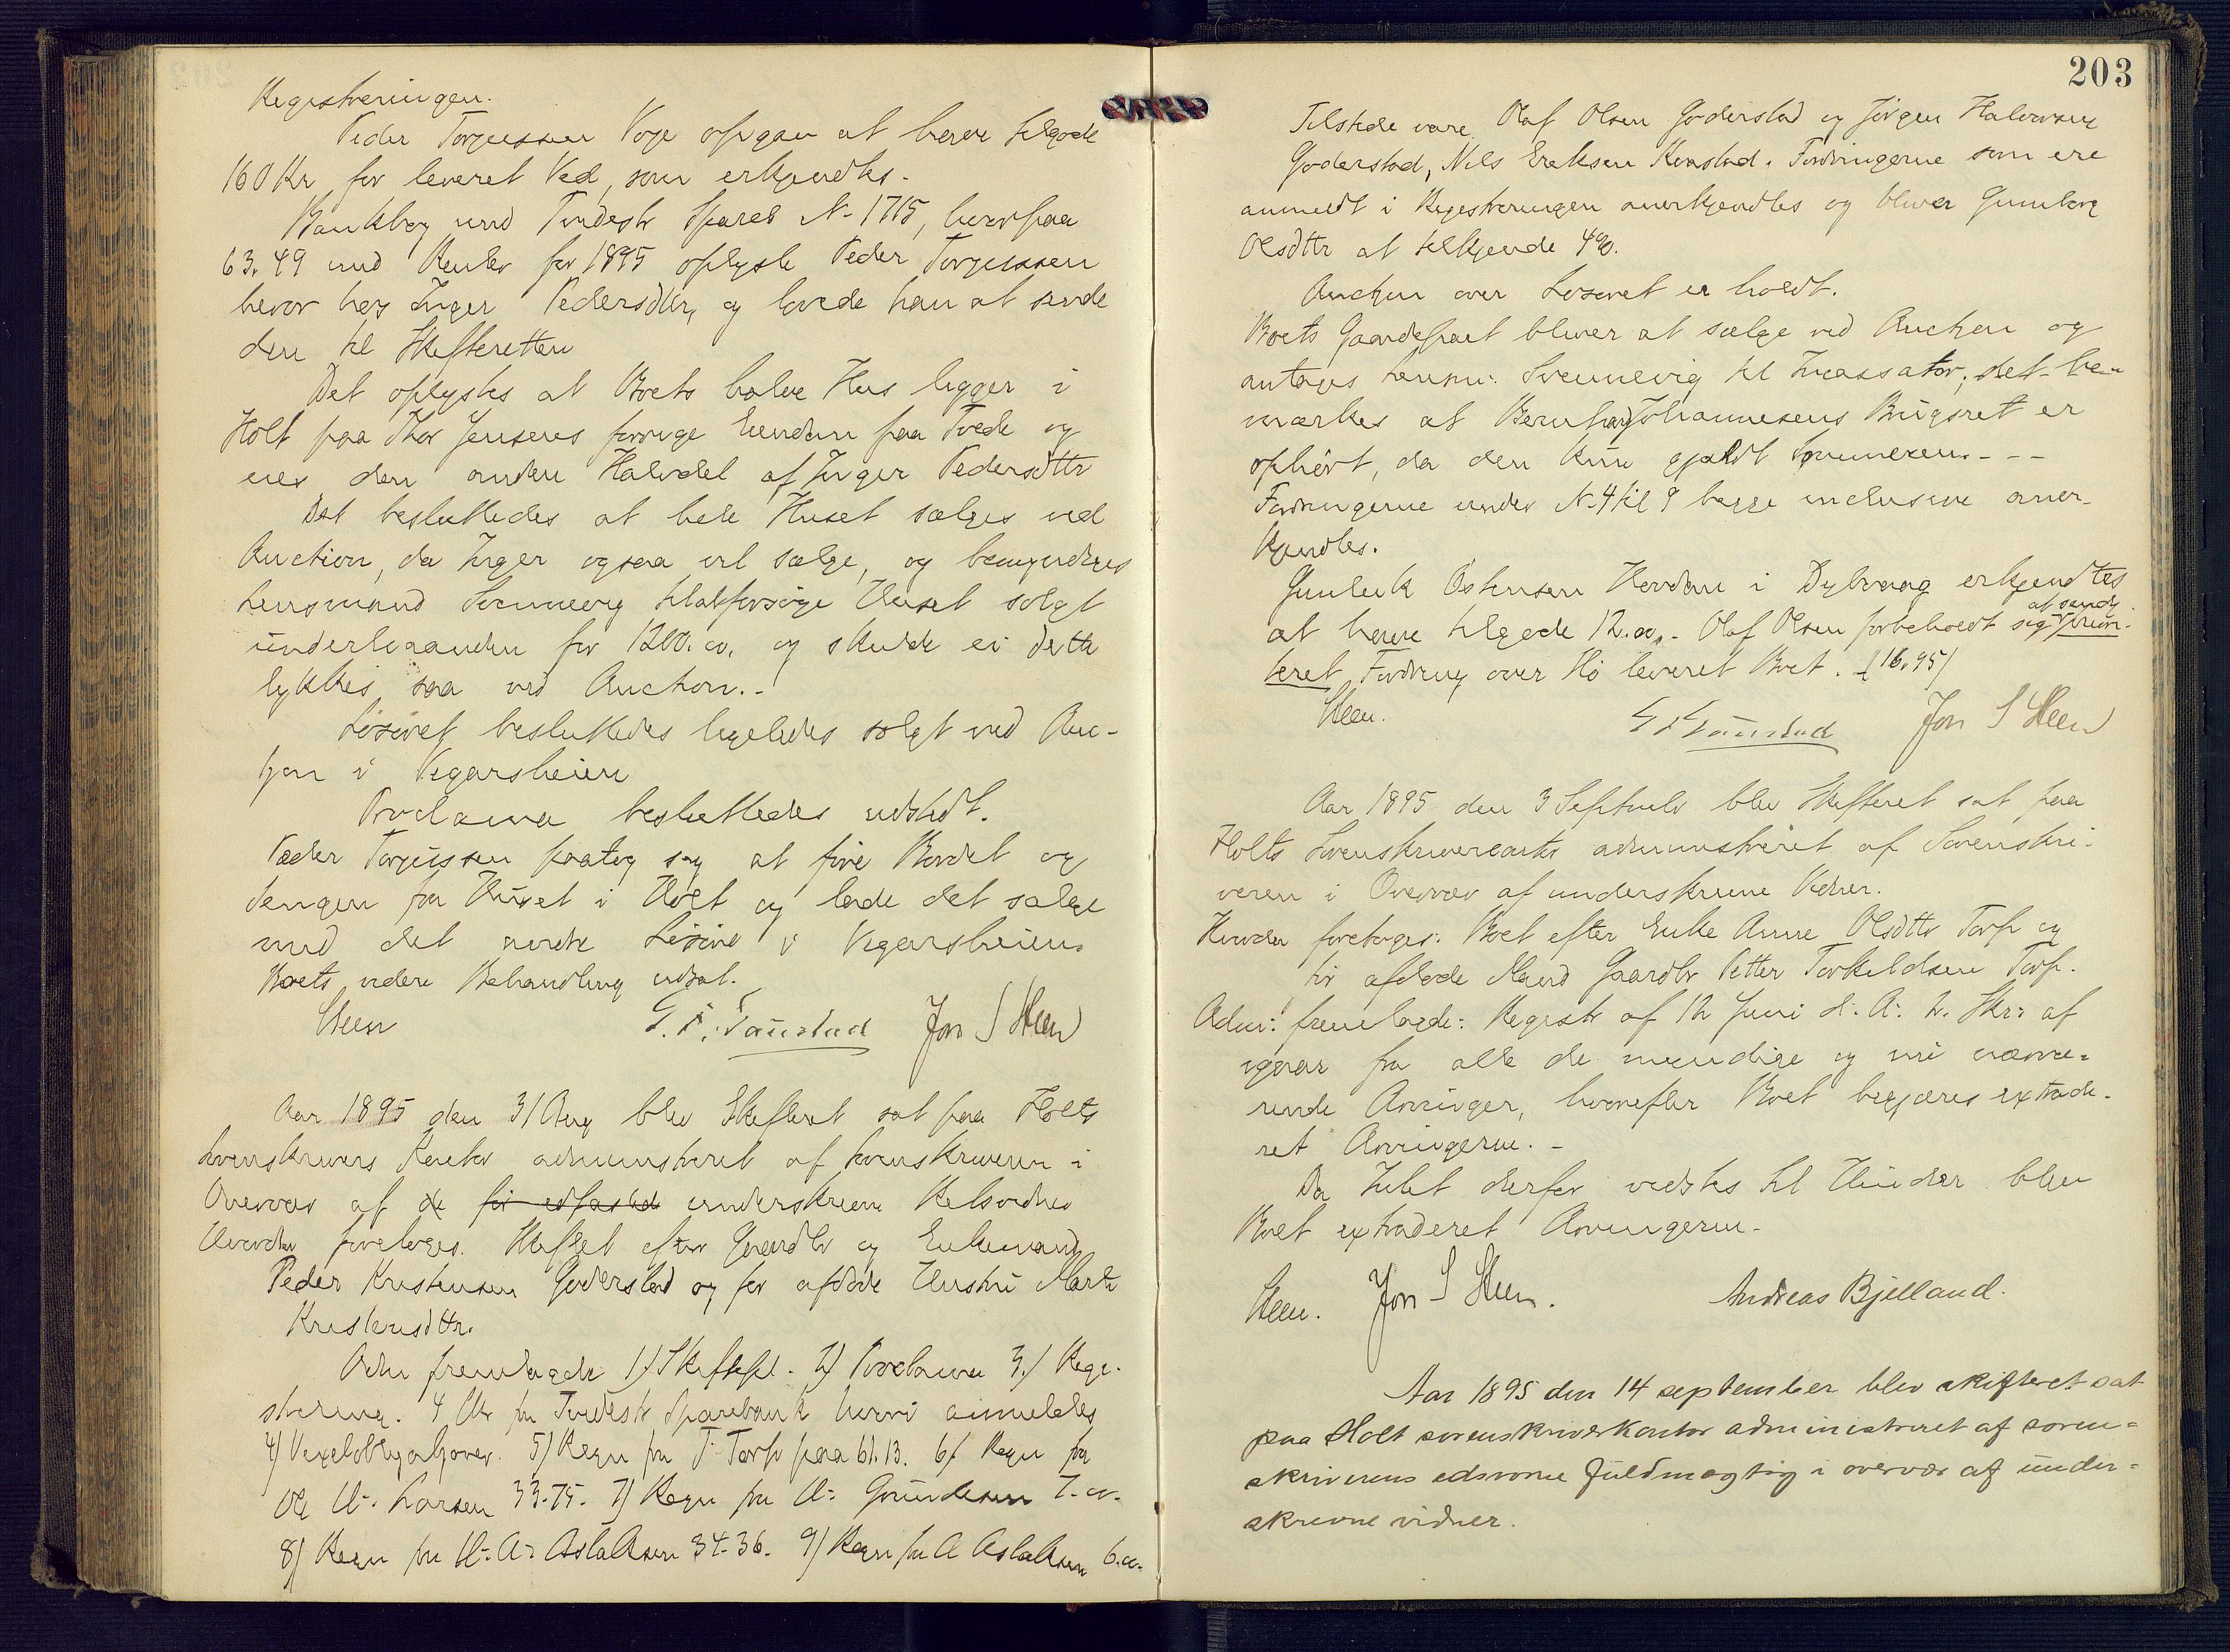 Registreringen.
Peder Torjussen Voje opgav at have tilgode
160 Kr for leveret Ved, som erkjendtes.
Bankbog med Tvedestr Spareb N- 1715, hvorpaa
63.49 med Renter for 1895 oplyste Peder Torjussen
beror hos Inger Pedersdttr, og lovede han at sende
den til Skifteretten
Det oplystes at Boets halve Hus ligger i
Holt paa Thor Jensens forrige Eiendom paa Tvede og
eies den anden Halvdel af Inger Pedersdttr
Det besluttedes at hele Huset sælges ved
Auction, da Inger ogsaa vil sælge, og bemyndiges
Lensmand Svennevig til at forsøge Huset solgt
underhaanden for 1200.00. og skulde ei dette
lykkes saa ved Auction.-
Løsøret besluttedes ligeledes solgt ved Auc-
tjon i Vegarsheien
Proclama besluttedes udstedt.
Peder Torjussen paatog sig at føre Bordet og
Sengen fra Huset i Holt og lade det sælge
med det andre Løsøre i Vegarsheien.
Boets videre Behandling udsat.
Steen G. F. Taustad Jon S Steen
Aar 1895 den 31 Aug blev Skifteret sat paa Holts
Sorenskrivers Kontor administreret af Sorenskriveren i
Overvær af de underskrevne Retsvidner
Hvorda foretoges. Skiftet efter Gaardbr og Enkemand
Peder Kristensen Goderstad og før afdøde Hustru Marte
Kristensdttr.
Adm fremlagde 1) Skiftefl. 2) Proclama 3.) Regi-
strering. 4 Skr fra Tvedestr Sparebank hvori anmeldes
4) Vexelobligationer. 5) Regn fra T. Torp paa 61.13. 6) Regn fra
Ole H. Larsen 33.75. 7) Regn fra H. Gundersen 7.00.
8) Regn fra H. A. Aslaksen 34.36. 9) Regn fra A Aslaksen 6.00.
203
Tilstede vare Olaf Olsen Goderstad og Jörgen Halvorsen
Goderstad, Nils Ereksen Kvastad. Fordringerne som ere
anmeldt i Registreringen anerkjendtes og bliver Gunborg
Olsdttr at tilkjende 4%.
Auction over Løsøret er holdt.
Boets Gaardepart bliver at sælge ved Auction og
antages Lensm: Svennevig til Incassator; det be-
mærkes at Bernhard Johannesens Brugsret er
ophört, da den kun gjaldt Sommeren. - -
Fordringerne under N-4 til 9 begge inclusive aner-
kjendtes.
Gunleik Östensen Hovdan i Dybvaag erkjendtes
at have tilgode 12.00. Olaf Olsen forbeholdt sig at sende
teret Fordring over Hö leveret Boet. (16.95)
Steen. G F Taustad Jon S Steen
Aar 1895 den 3 Septemb blev Skifteret sat paa
Holts Sorenskriverkontor administreret af Sorenskri-
veren i Overvær af underskrevne Vidner.
Hvorda foretoges: Boet efter Enke Anne Olsdttr Torp og
för afdøde Mand Gaardbr Petter Torkildsen Torp.
Adm: fremlagde: Registr af 12 Juni d. A: 2. Skr: af
igaar fra alle de myndige og nu nærvæ-
rende Arvinger, hvorefter Boet begjæres extrade-
ret Arvingerne. -
Da Intet derfor vidstes til Hinder blev
Boet extraderet Arvingerne.
Steen. Jon S Steen. Andreas Bjelland.
Aar 1895 den 14 september blev skifteret sat
paa Holt sorenskriverkontor administreret af soren-
skriverens edsvorne fuldmægtig i overvær af under-
skrevne vidner.